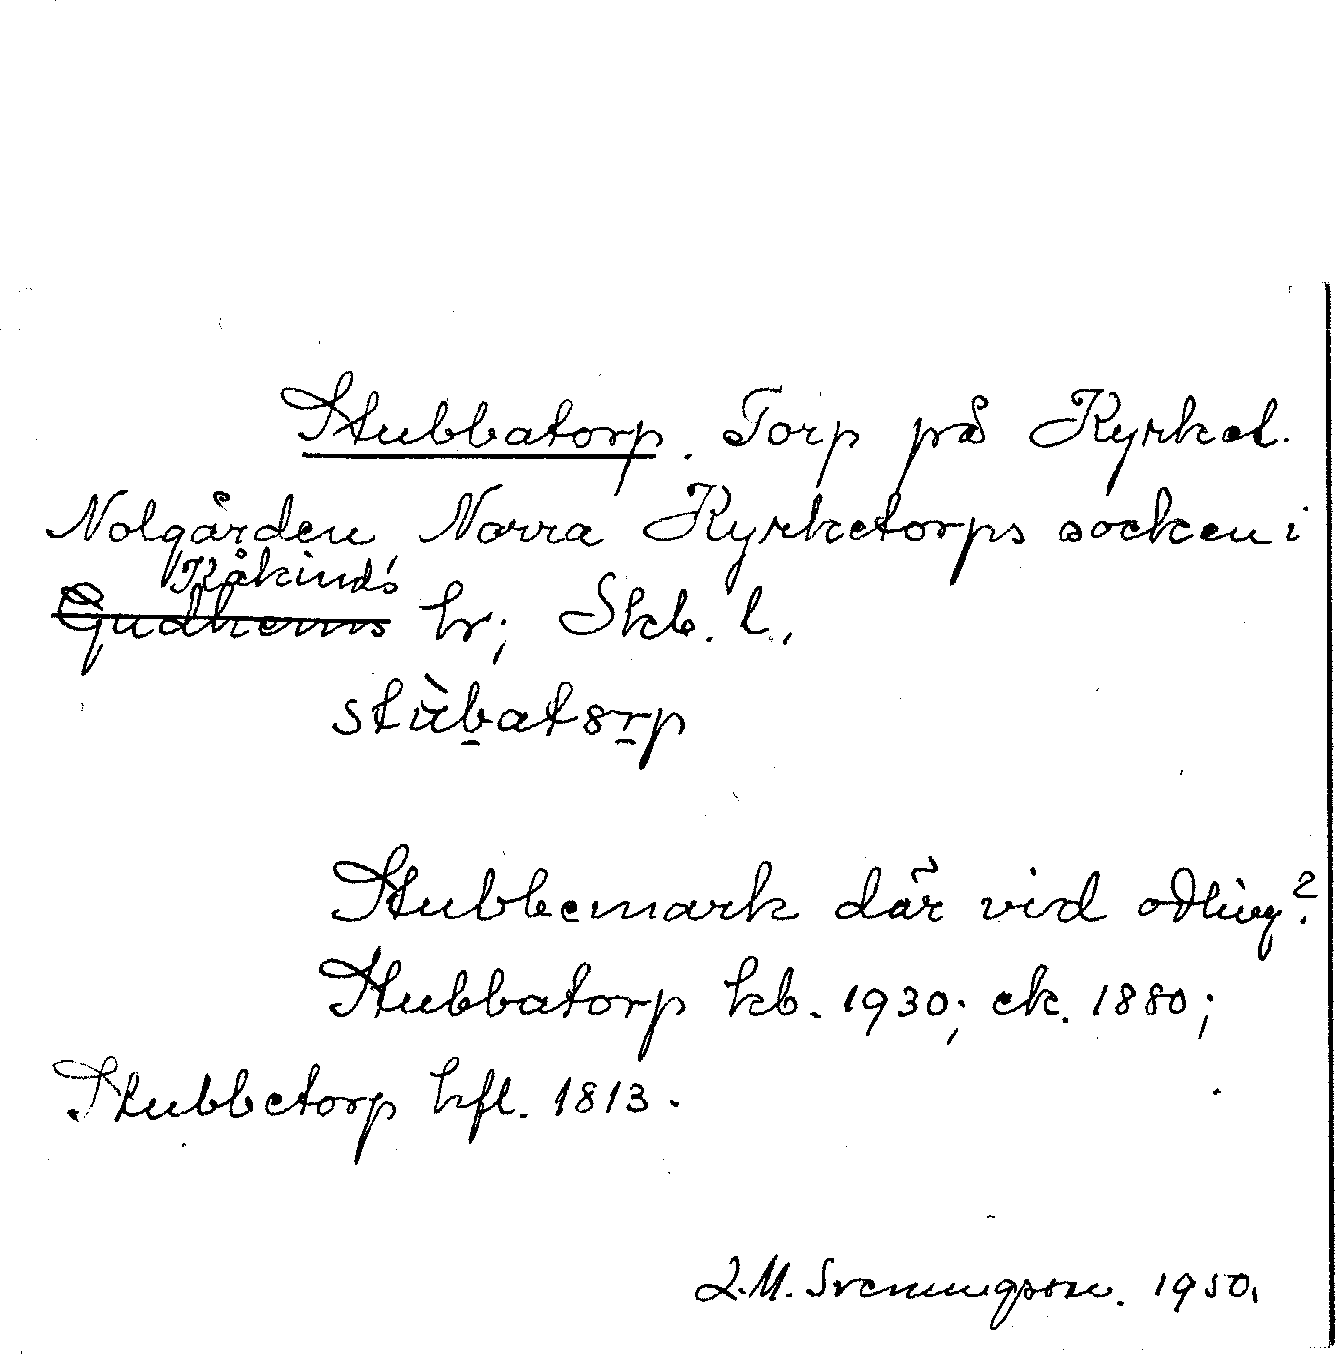 Stubbatorp. Torp på Kyrkel.
Nolgården, Norra Kyrketorps socken i
Kåkinds
Gudhems hr; Skb. l.,
stùbatorp
Stubbemark där vid odling?
Stubbatorp kb. 1930; ek. 1880;
Stubbetorp hfl. 1813.
L.M. Svenungsson. 1950.